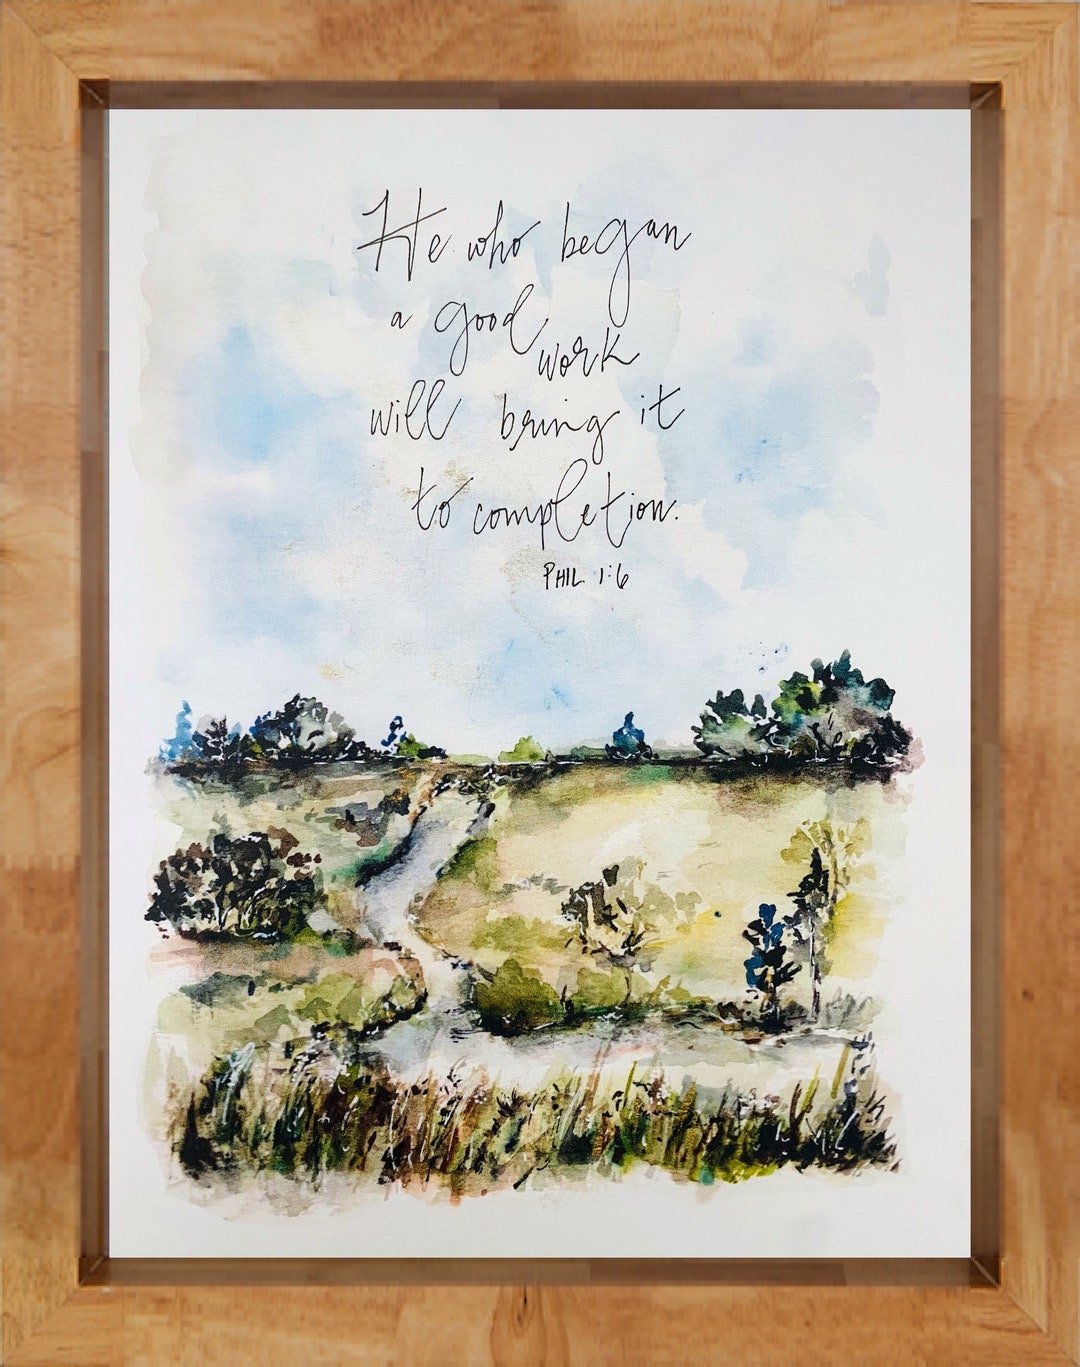 He who began
a good
work
will bring it
to completion.
PHIL 1:6